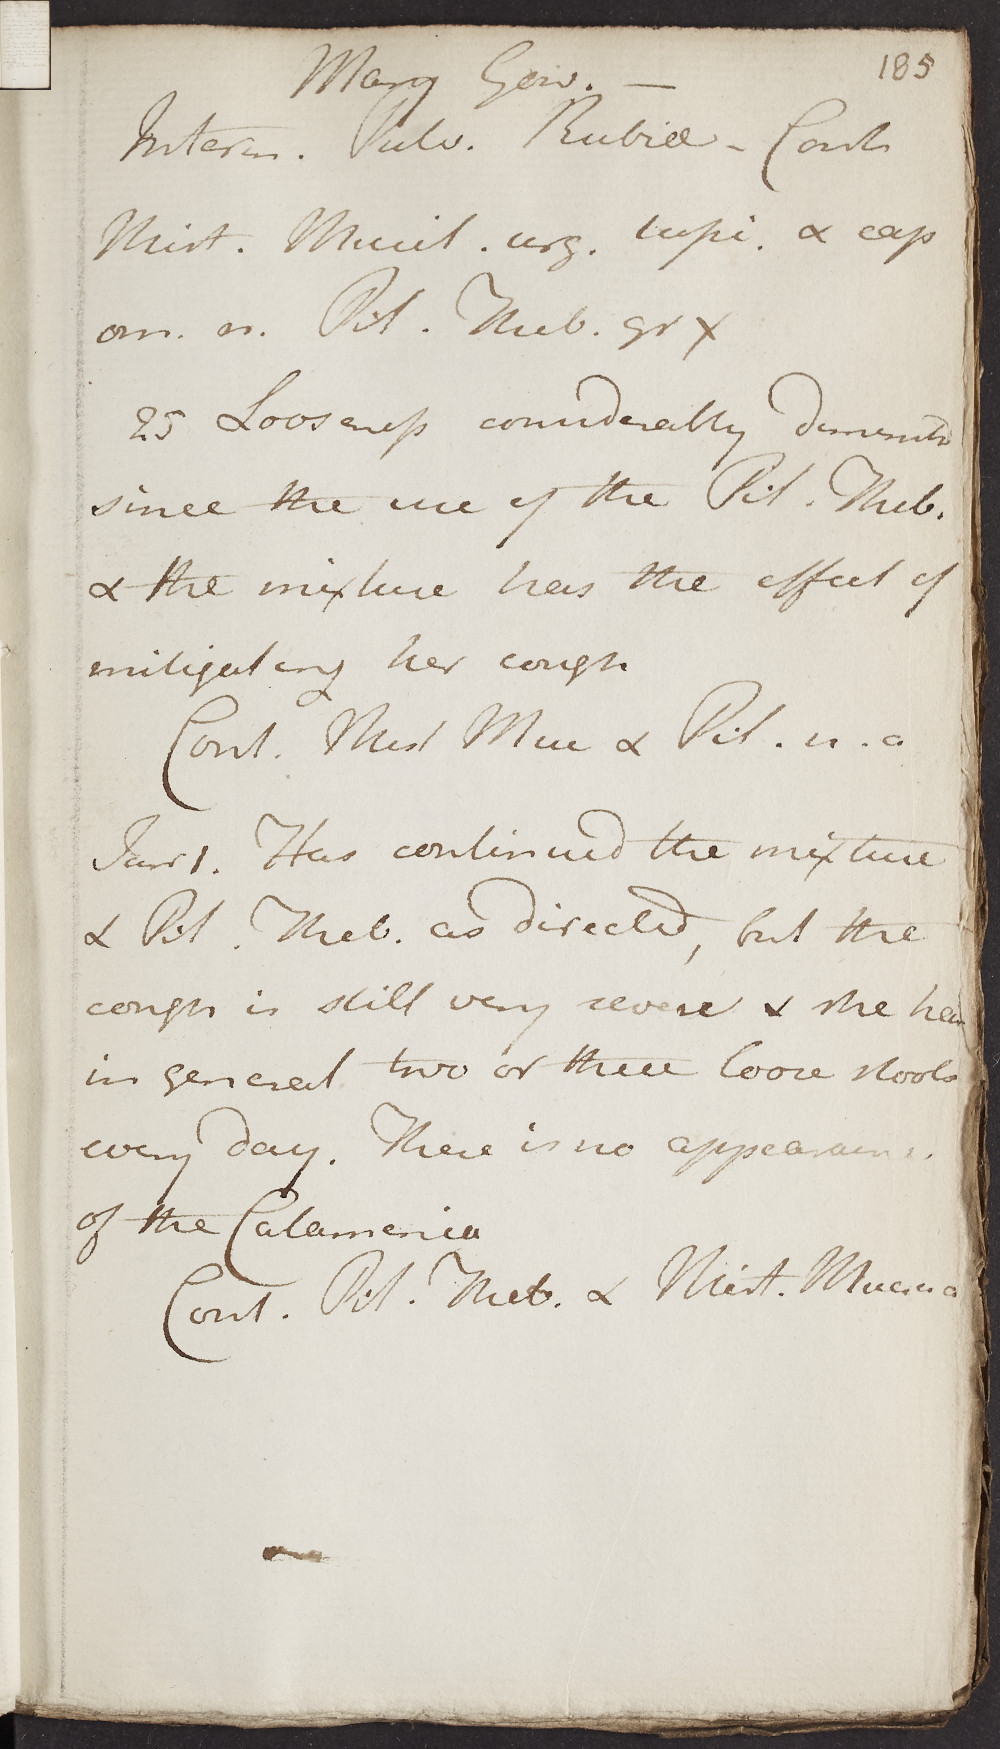 185
Mary Gow. —
Interm. Pulv. Rubiæ - Cont
Mist. Mucil. urg. tussi. & cap
om. n. Pil. Theb. gr x
25 Looseness considerably diminish
since the use of the Pil. Theb.
& the mixture has the effect of
mitigating her cough
Cont. Mist Muc & Pil. u. a
Jan 1. Has continued the mixture
& Pil. Theb. as directed, but the
cough is still very severe & she has
in general two or three loose stools
every day. There is no appearance
of the Catamenia
Cont. Pil. Theb. & Mist. Muc. u a